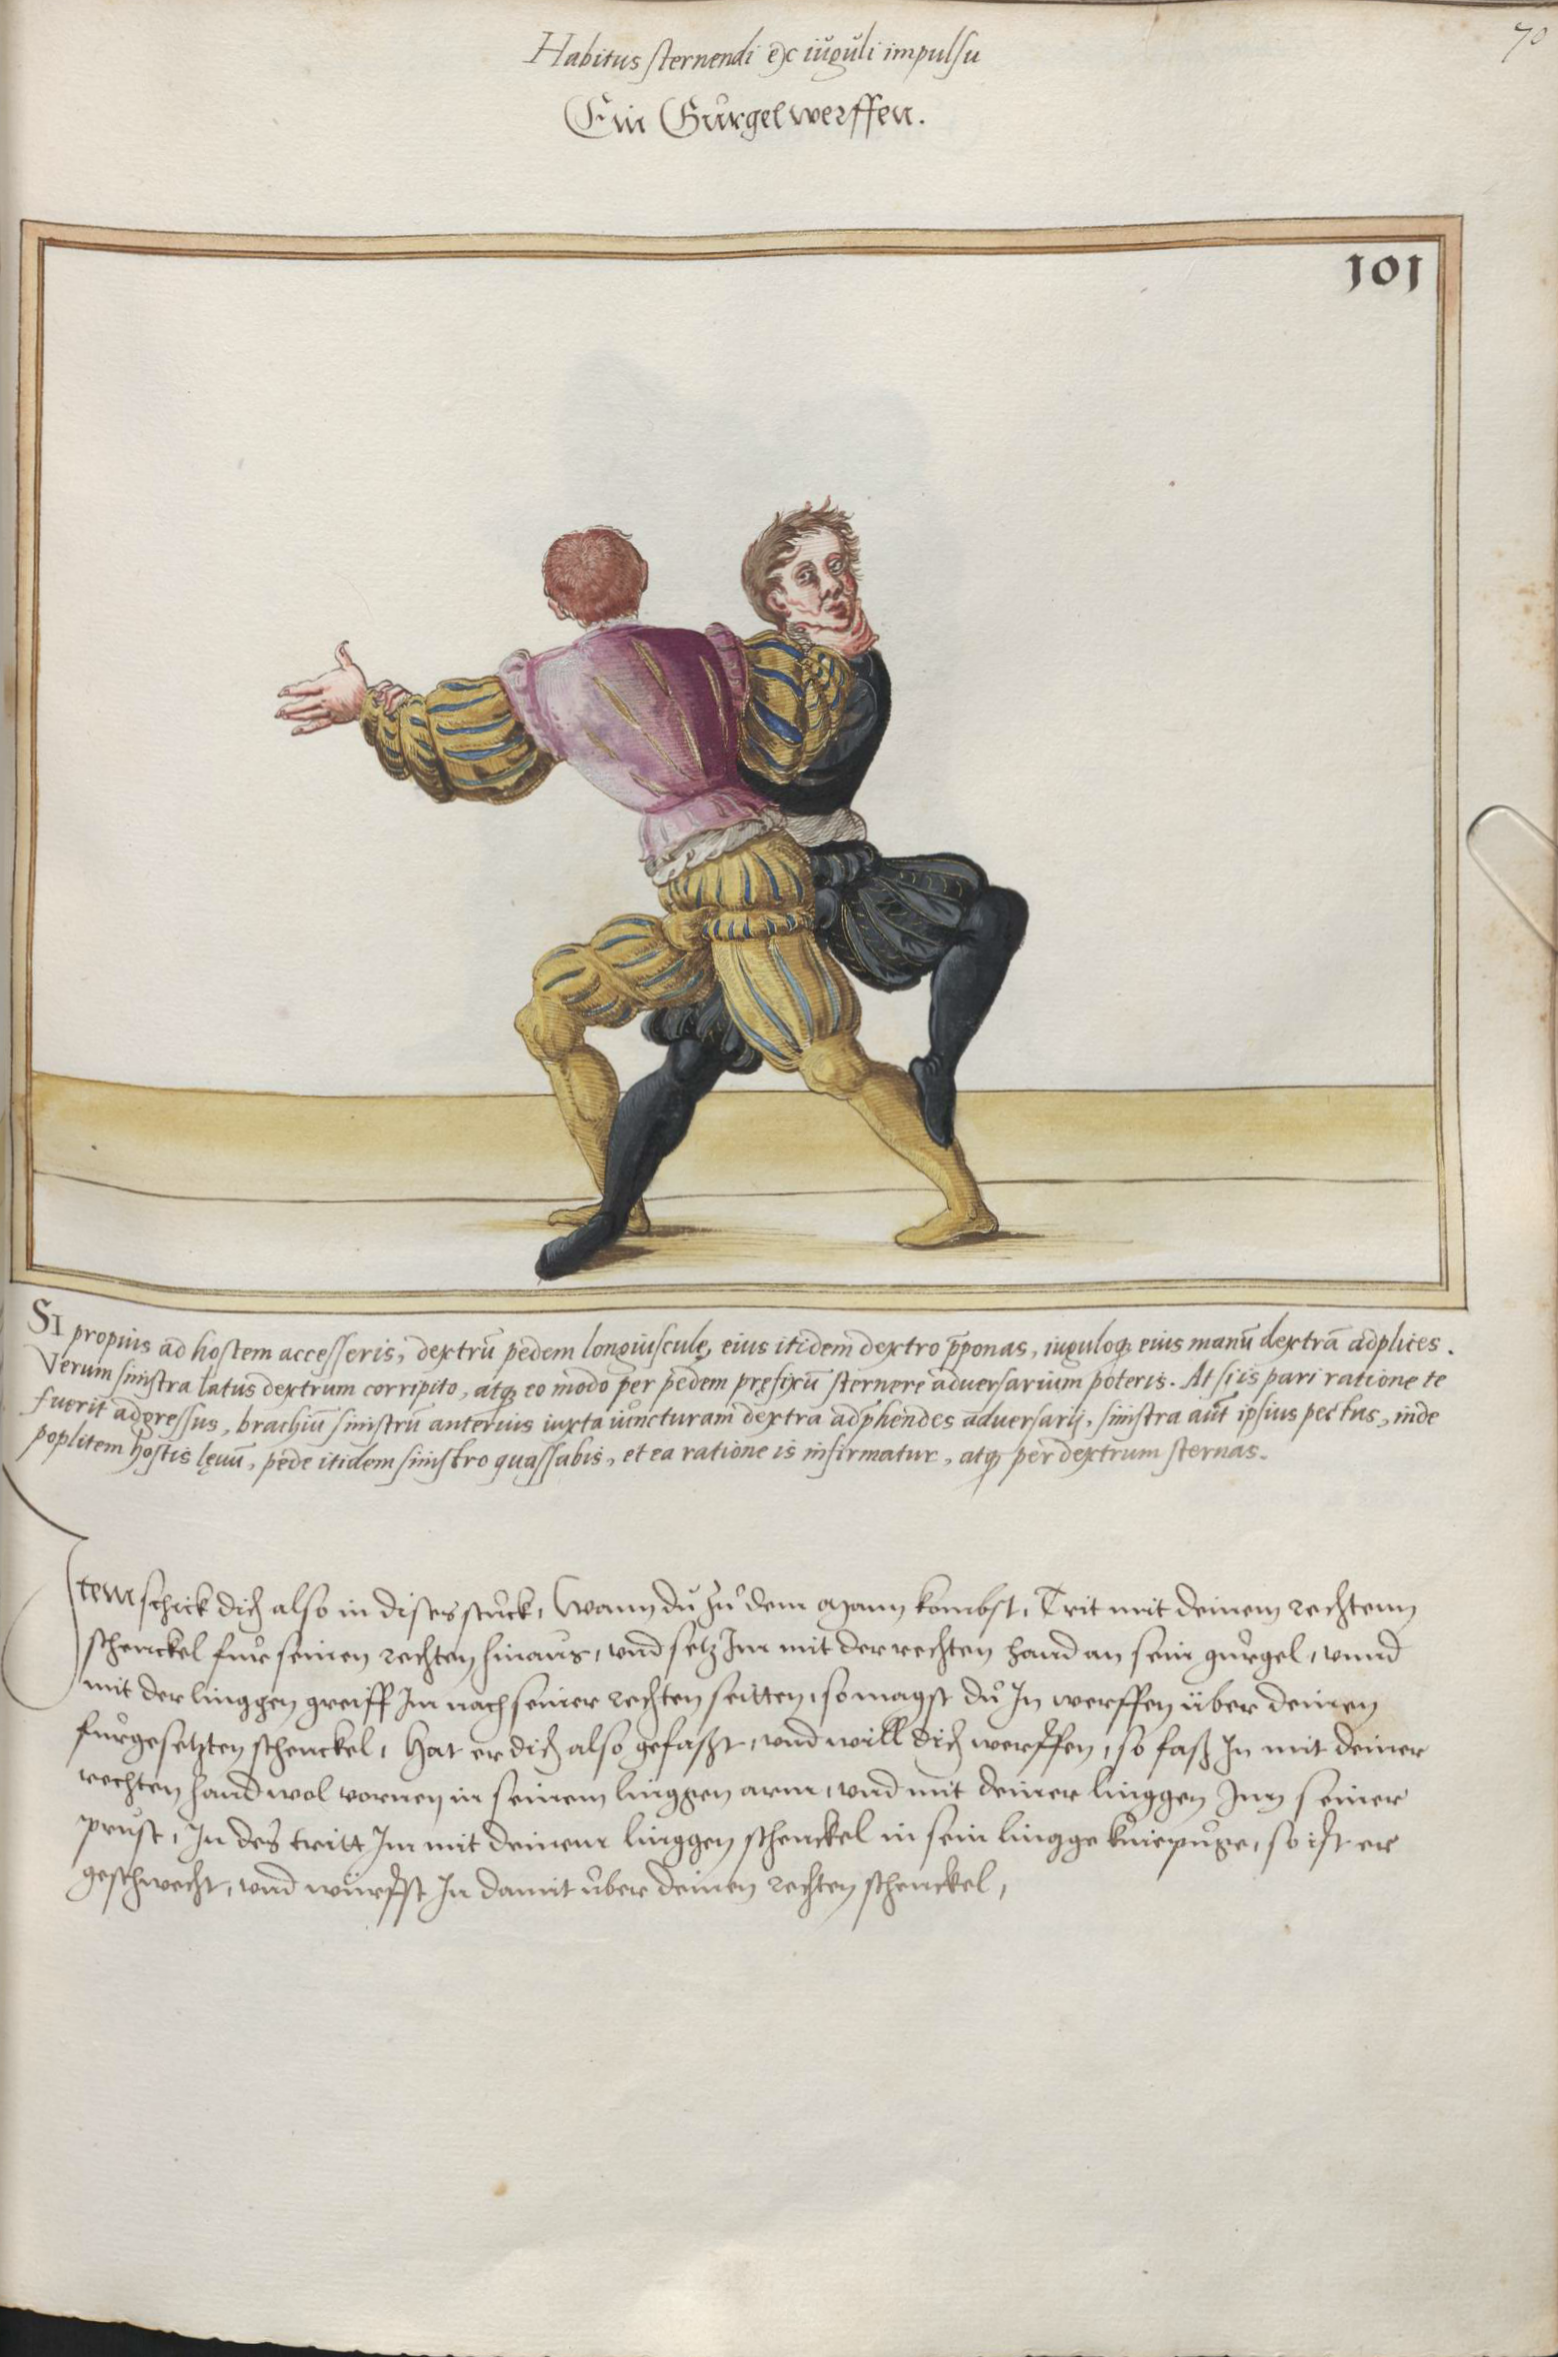 70
Habitus sternendi ex iuguli impulsu
Ein Gurgel werffen.
101
SI propius ad hostem accesseris, dextrũ pedem longiusculę, eius itidem dextro p̄ponas, iuguloq; eius manũ dextrã adplices.
Verum sinistra latus dextrum corripito, atq; eo modo per pedem pręfixũ sternere adversarium poteris. At si is pari ratione te
fuerit adgressus, brachiũ sinistrũ anterius iuxta iuncturam dextra adp̄hendes adversarij, sinistra aut̃ ipsius pectus, inde
poplitem hostis lęvũ, pede itidem sinistro quassabis, et ea ratione is infirmatur, atq; per dextrum sternas.
Item schick dich also in dises stuck, Wann du zuͦ dem Mann kombst, Trit mit deinem rechtenn
schenckel fur seinen rechten hinaus, vnnd setz Im mit der rechten hand an sein gurgel, vnnd
mit der linggen greiff Im nach seiner rechten seitten, so magst du In werffen über deinen
furgesetzten schenckel, Hat er dich also gefaszt, vnd will dich werffen, so fasz In mit deiner
rechten hand wol vornen in seinem linggen arm, vnd mit deiner linggen Inn seiner
prust, In des tritt Im mit deinem linggen schenckel in sein lingge kniepuge, so ist er
geschwecht, vnd wurffst In damit uber deinen rechten schenckel,